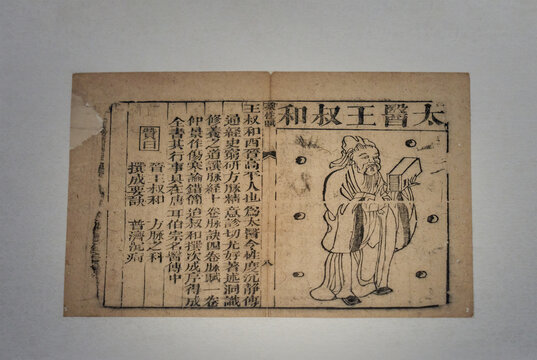 太醫王叔和
王叔和西晉高平人也爲太醫令性度沉靜博
通經史窮研方脉精意診切尤好著述洞識
修養之道譔脉經十卷脉訣四卷脉賦一卷
仲景作傷寒論錯簡迨叔和撰次成序得成
全書其行事具在唐甘伯宗名醫傳中
贊曰
晉王叔和　方脉之科
撰成要訣　普濟沉痾
八